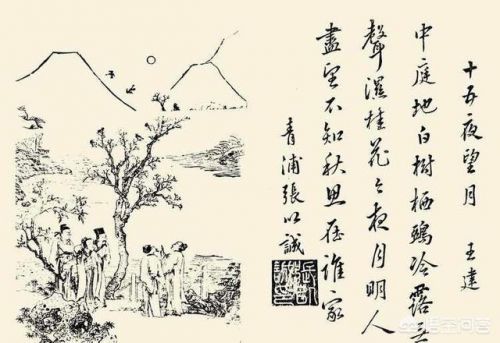 十五夜望月 王建
中庭地白樹栖鴉冷露无
聲濕桂花今夜月明人
盡望不知秋思在誰家
青浦張以誠
悟空问答